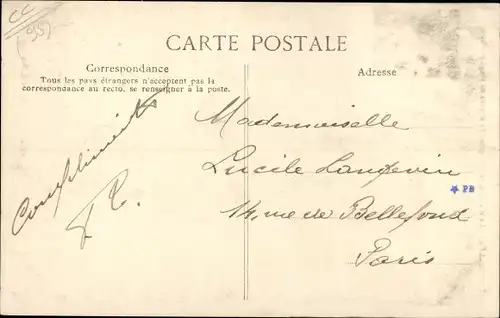 CC
CARTE POSTALE
Correspondance
Tous les pays étrangers n'acceptent pas la
correspondance au recto, se renseigner à la poste.
Adresse
Compliments
Mademoiselle
Lucile Langevin
14, rue de Bellefond
Paris
PB